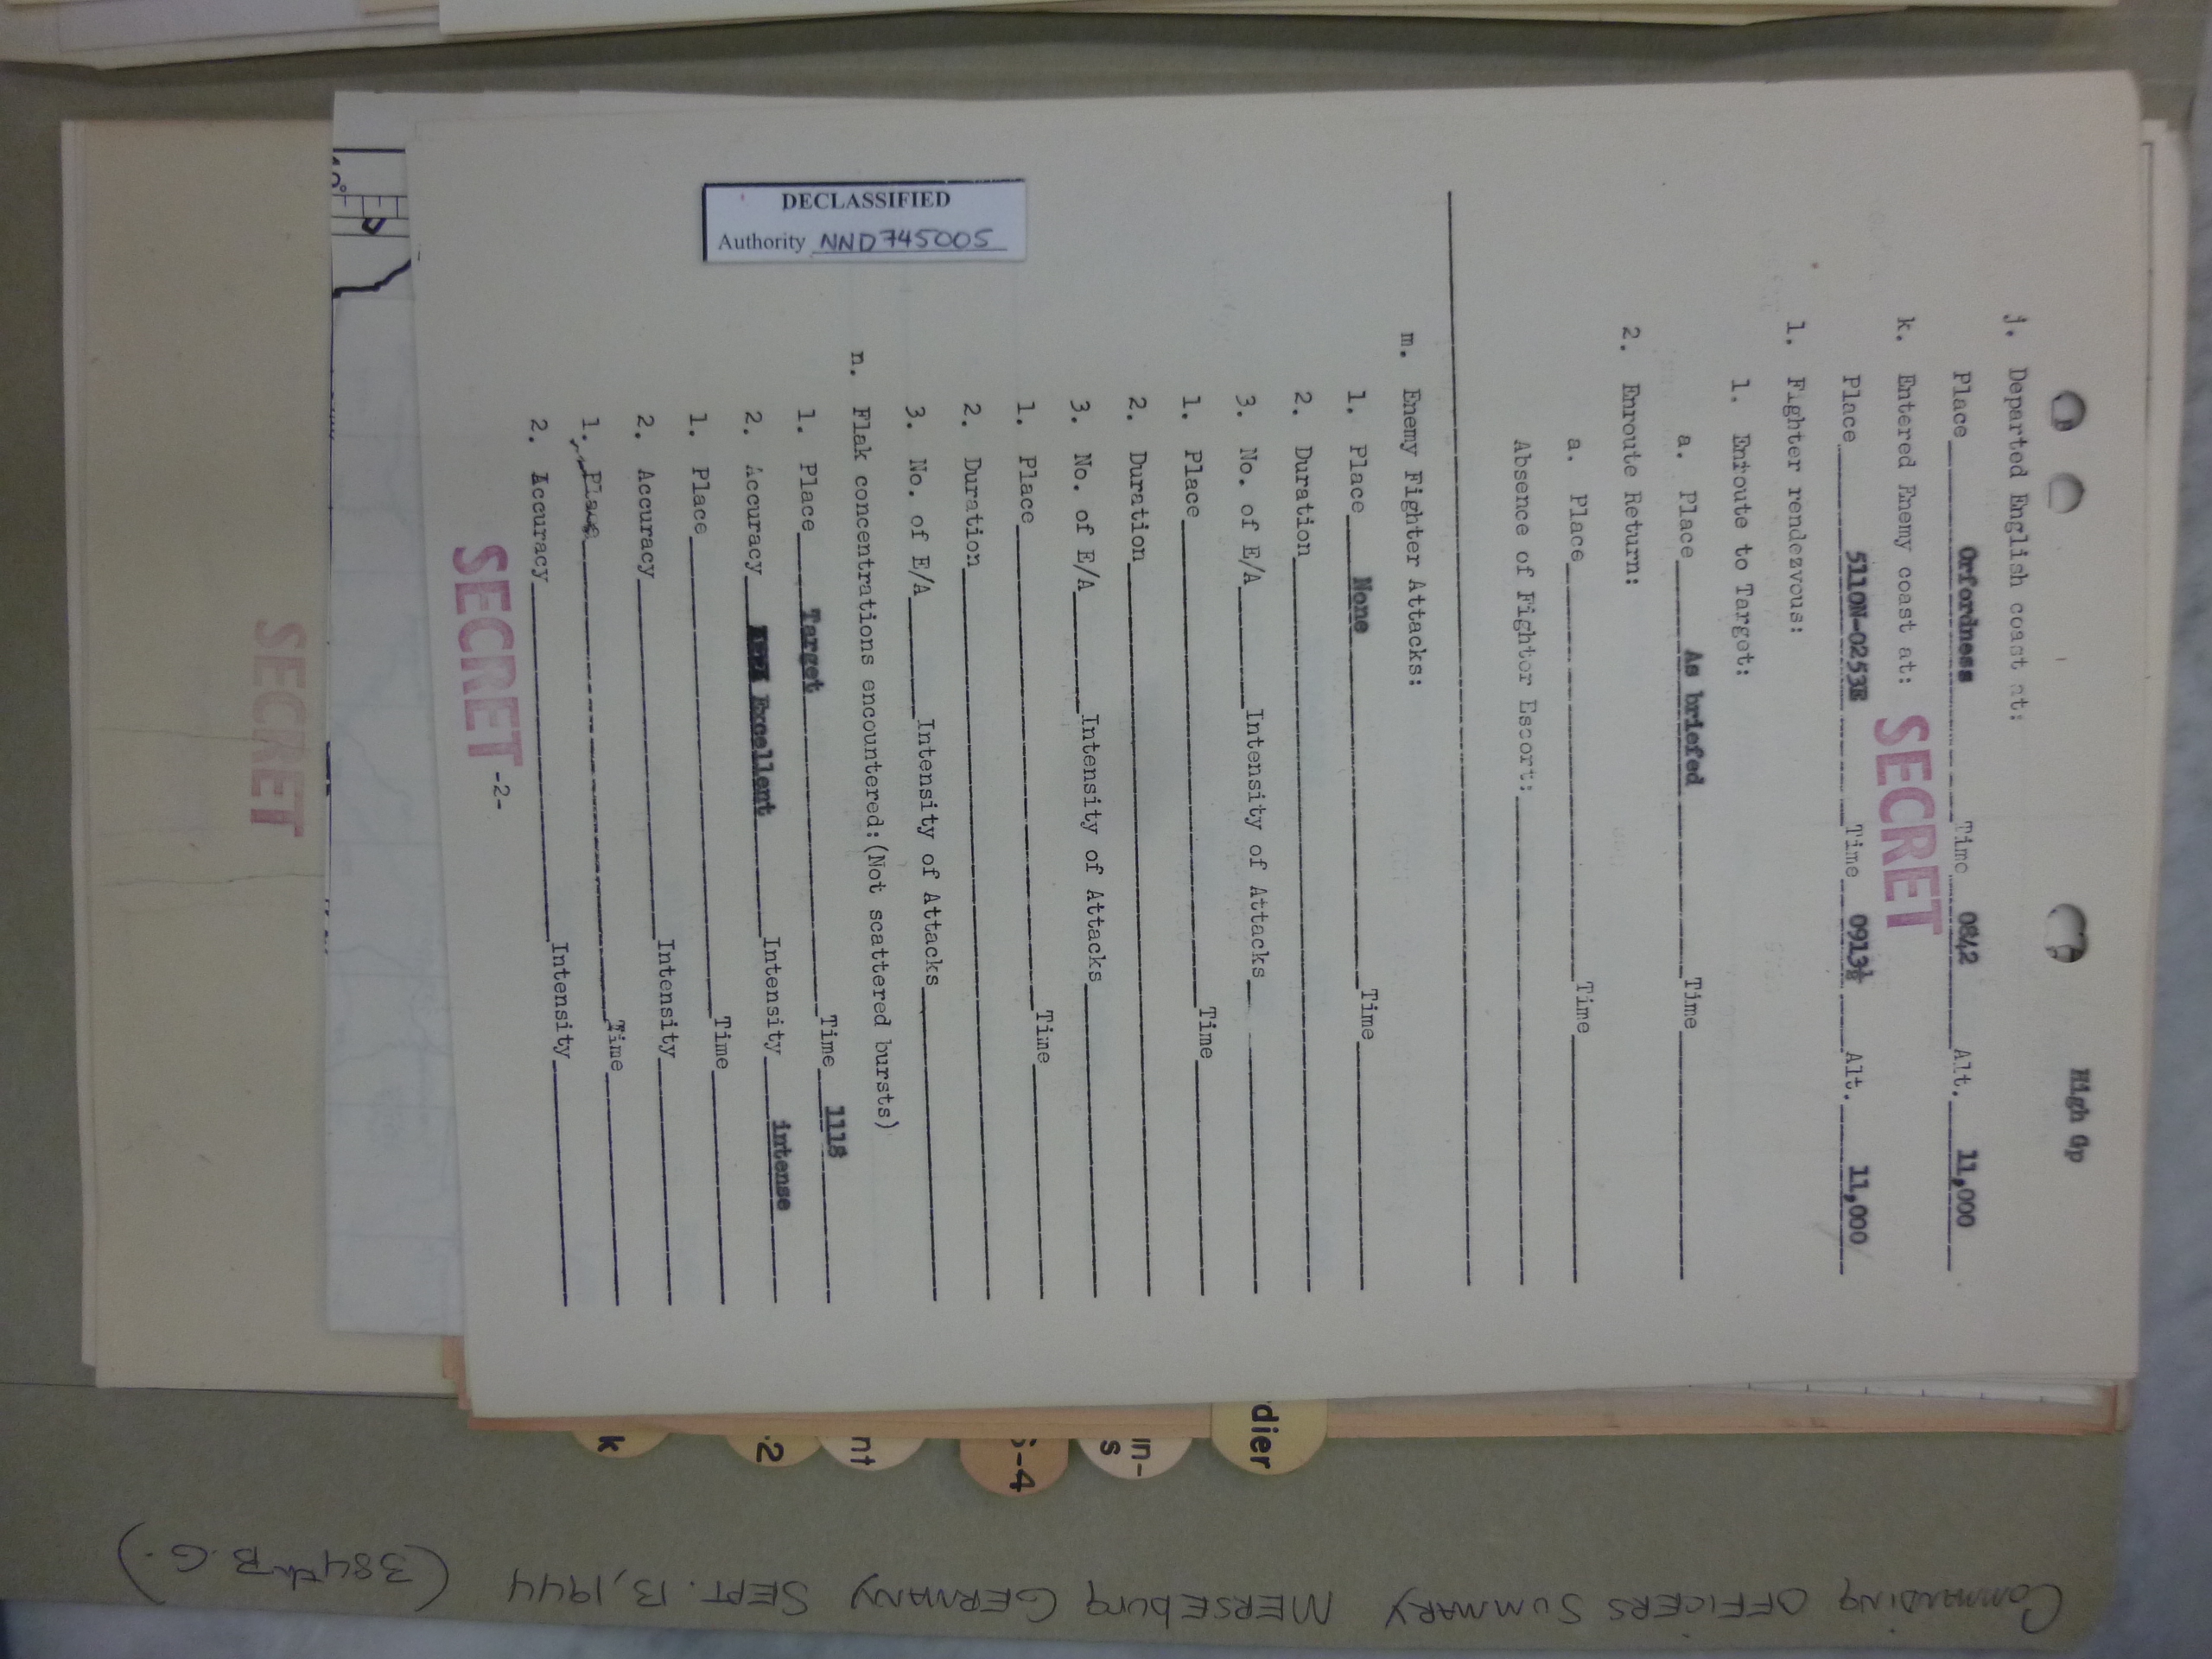 High Gp
j. Departed English coast at:
Place Orfordness Time 0842 Alt. 11,000
SECRET
k. Entered Enemy coast at:
Place 5110N-0253E Time 0913½ Alt. 11,000
l. Fighter rendezvous:
1. Enroute to Target:
a. Place As briefed Time
2. Enroute Return:
a. Place Time
Absence of Fighter Escort:
m. Enemy Fighter Attacks:
1. Place None Time
2. Duration
3. No. of E/A Intensity of Attacks
1. Place Time
2. Duration
3. No. of E/A Intensity of Attacks
1. Place Time
2. Duration
3. No. of E/A Intensity of Attacks
n. Flak concentrations encountered:(Not scattered bursts)
1. Place Target Time 1118
2. Accuracy Excellent Intensity intense
1. Place Time
2. Accuracy Intensity
1. Place Time
2. Accuracy Intensity
SECRET -2-
SECRET
DECLASSIFIED
Authority NND 745005
dier
in-
s
-4
nt
-2
k
COMMANDING OFFICERS SUMMARY MERSEBURG GERMANY SEPT. 13, 1944 (384th B.G.)